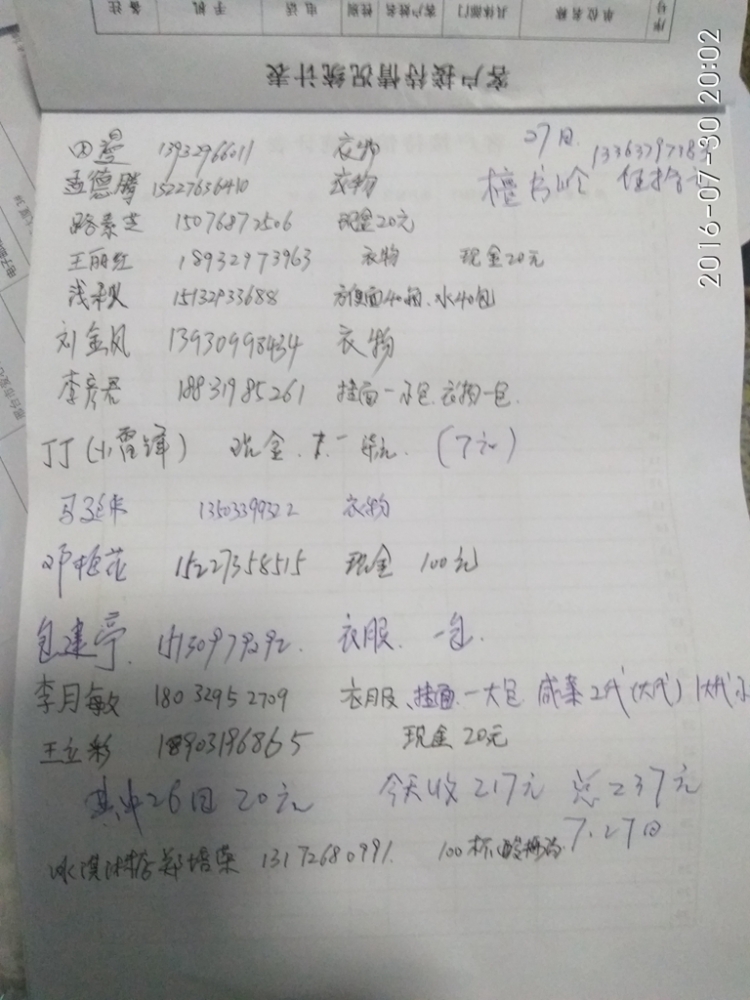 序号 单位名称 具体部门 客户姓名 性别 电话 手机 备注
客户接待情况统计表
2016-07-30 20:02
27日.
13932966011 衣物
孟德腾 15227636410 衣物
路素芝 15076872506 现金20元
王丽红 18932973963 衣物 现金20元
15132933688 方便面40箱、水40包
刘金凤 13930998434 衣物
李彦君 18831985261 挂面一小包.衣物一包.
丁丁(小雷锋) 现金. 柒元. (7元)
13503399322 衣物
邓梅花 15227358515 现金 100元
包建亭. 15130979292. 衣服. 一包.
李月敏 18032952709 衣服、挂面.一大包 咸菜2代(大代) 1大代
王立彩 18903196865 现金20元
其中26日20元 今天收217元 总237元
7.27日
冰淇淋店郑培荣 13172680991. 100杯酸梅汤